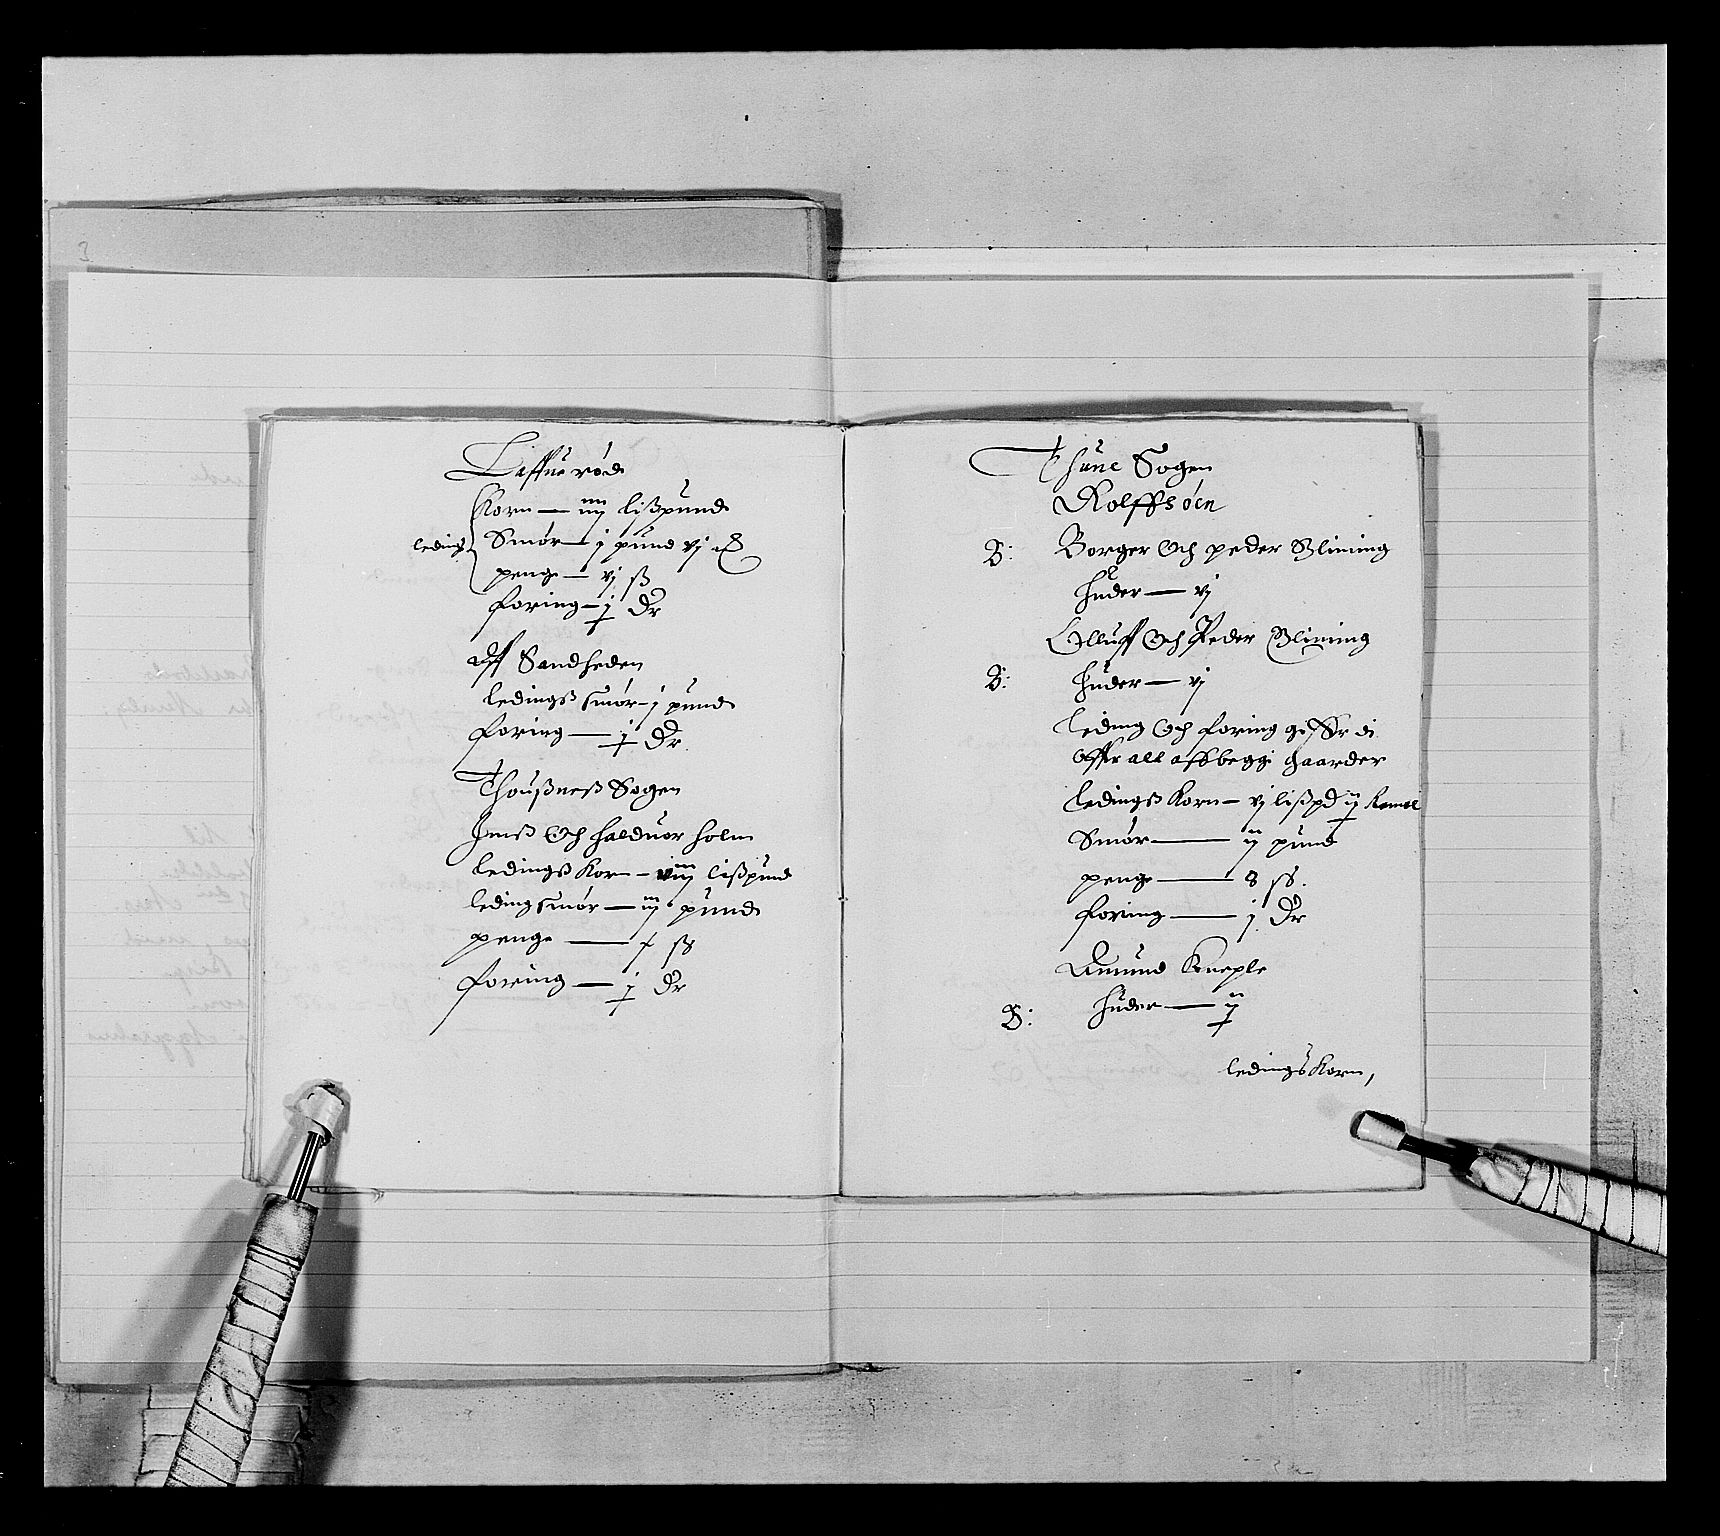 Laffuerød
Korn — iiij lißpund
ledings Smør — j pund vj
penge — vj ß
foring — j Dr
Aff Sandheden
ledingß smør — j pund
foring — j Dr
Thoußneß Sogen
Jenß Och Halduor Holm
ledingß Korn — viiij lißpund
leding smør — iij pund
penge — ß
foring — j Dr
Thune Sogen
Rolffsøen
B: Borger Och peder Blining
Huder — vj
Olluff Och Peder Blining
B: Huder — vj
leding Och foring giffer di
Offuer all aff begge gaarder
ledingß Korn — vj lißpd ij
Smør — ij pund
penge — 8 ß.
foring — j Dr
Amund Kneple
B: Huder — ij
ledings Korn,